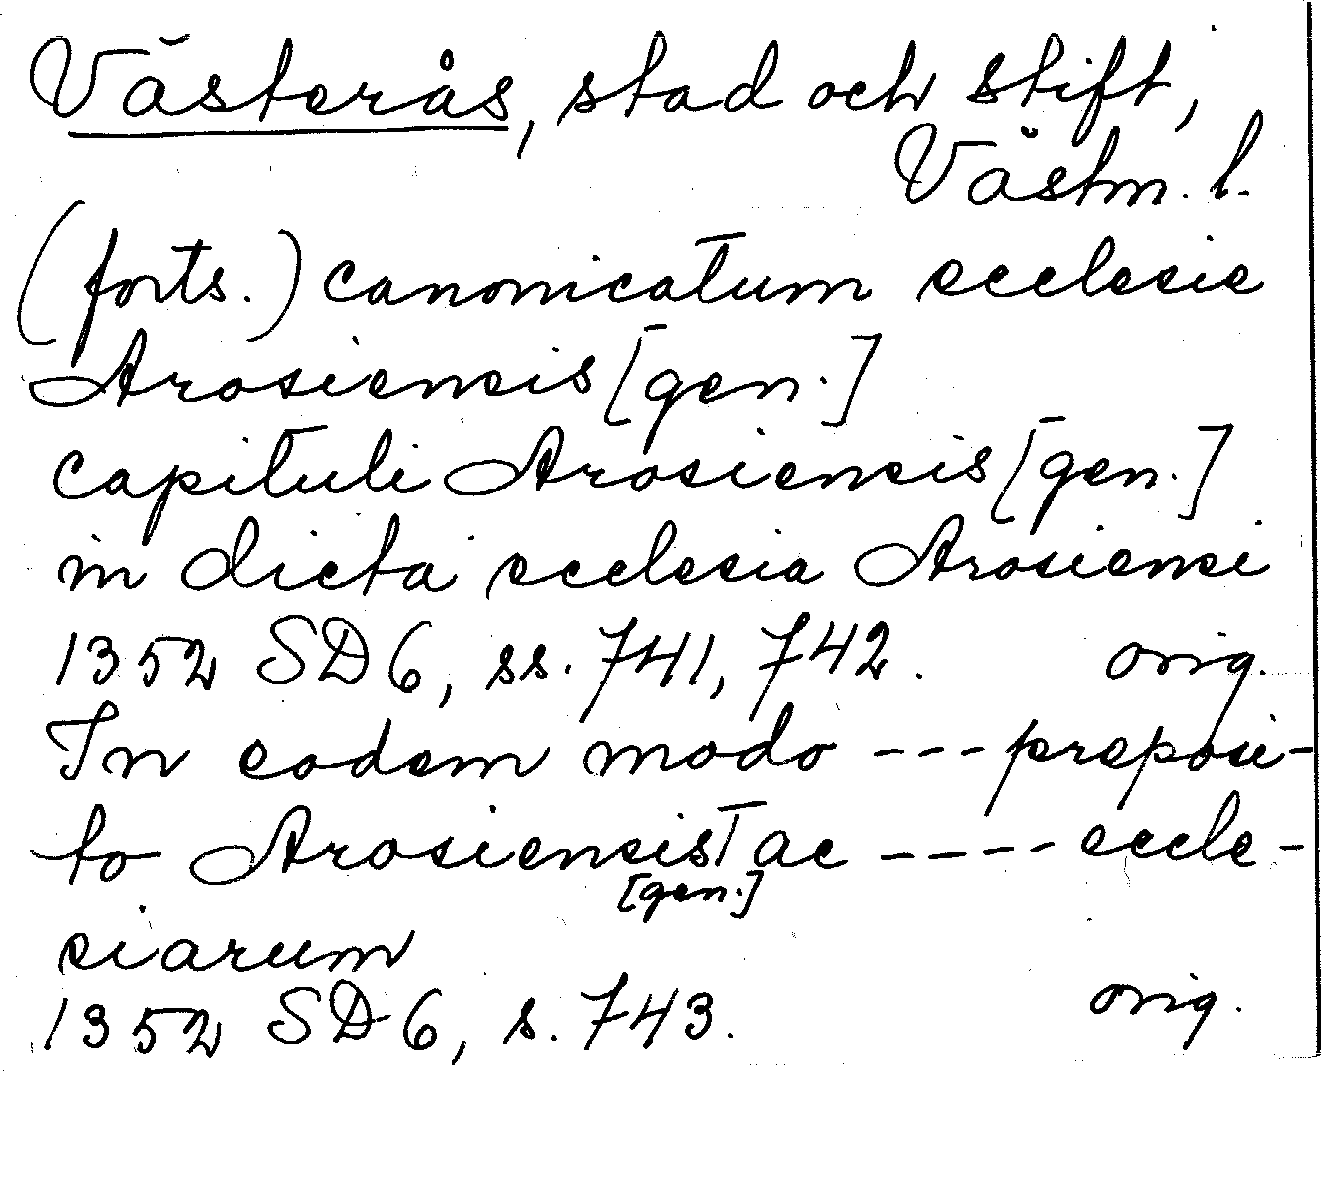 Västerås, stad och stift,
Västm. l.
(forts.) canonicatum ecclesie
Arosiensis [gen.]
capituli Arosiensis [gen.]
in dicta ecclesia Arosiensi
1352 SD 6, ss. 741, 742. orig.
In eodem modo --- preposi-
to Arosiensis ac ---- eccle-
[gen.]
siarum
1352 SD 6, s. 743. orig.